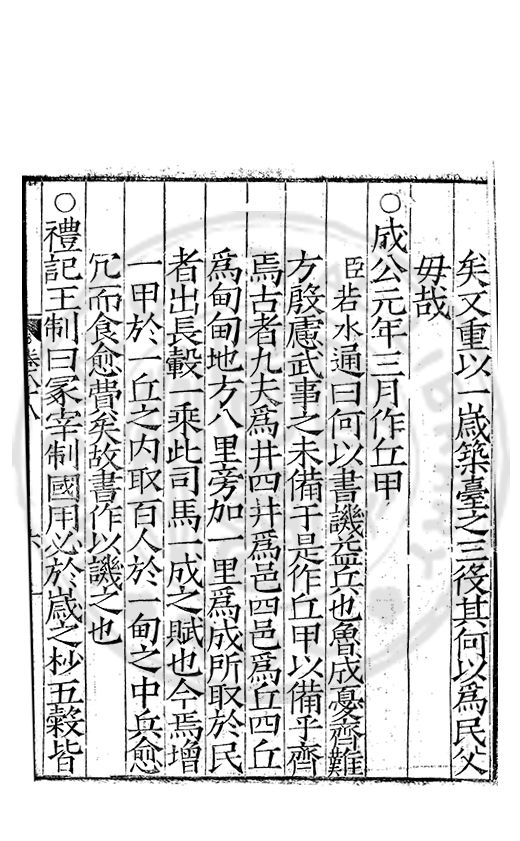 矣又重以一歲築臺之三役其何以爲民父
毋哉
○成公元年三月作丘甲
臣若水通曰何以書譏益兵也魯成憂齊難
方殷慮武事之未備于是作丘甲以備乎齊
焉古者九夫爲井四井爲邑四邑爲丘四丘
爲甸甸地方八里旁加一里爲成所取於民
者出長轂一乘此司馬一成之賦也今焉增
一甲於一丘之內取百人於一甸之中兵愈
冗而食愈費矣故書作以譏之也
○禮記王制曰冢宰制國用必於歲之杪五穀皆